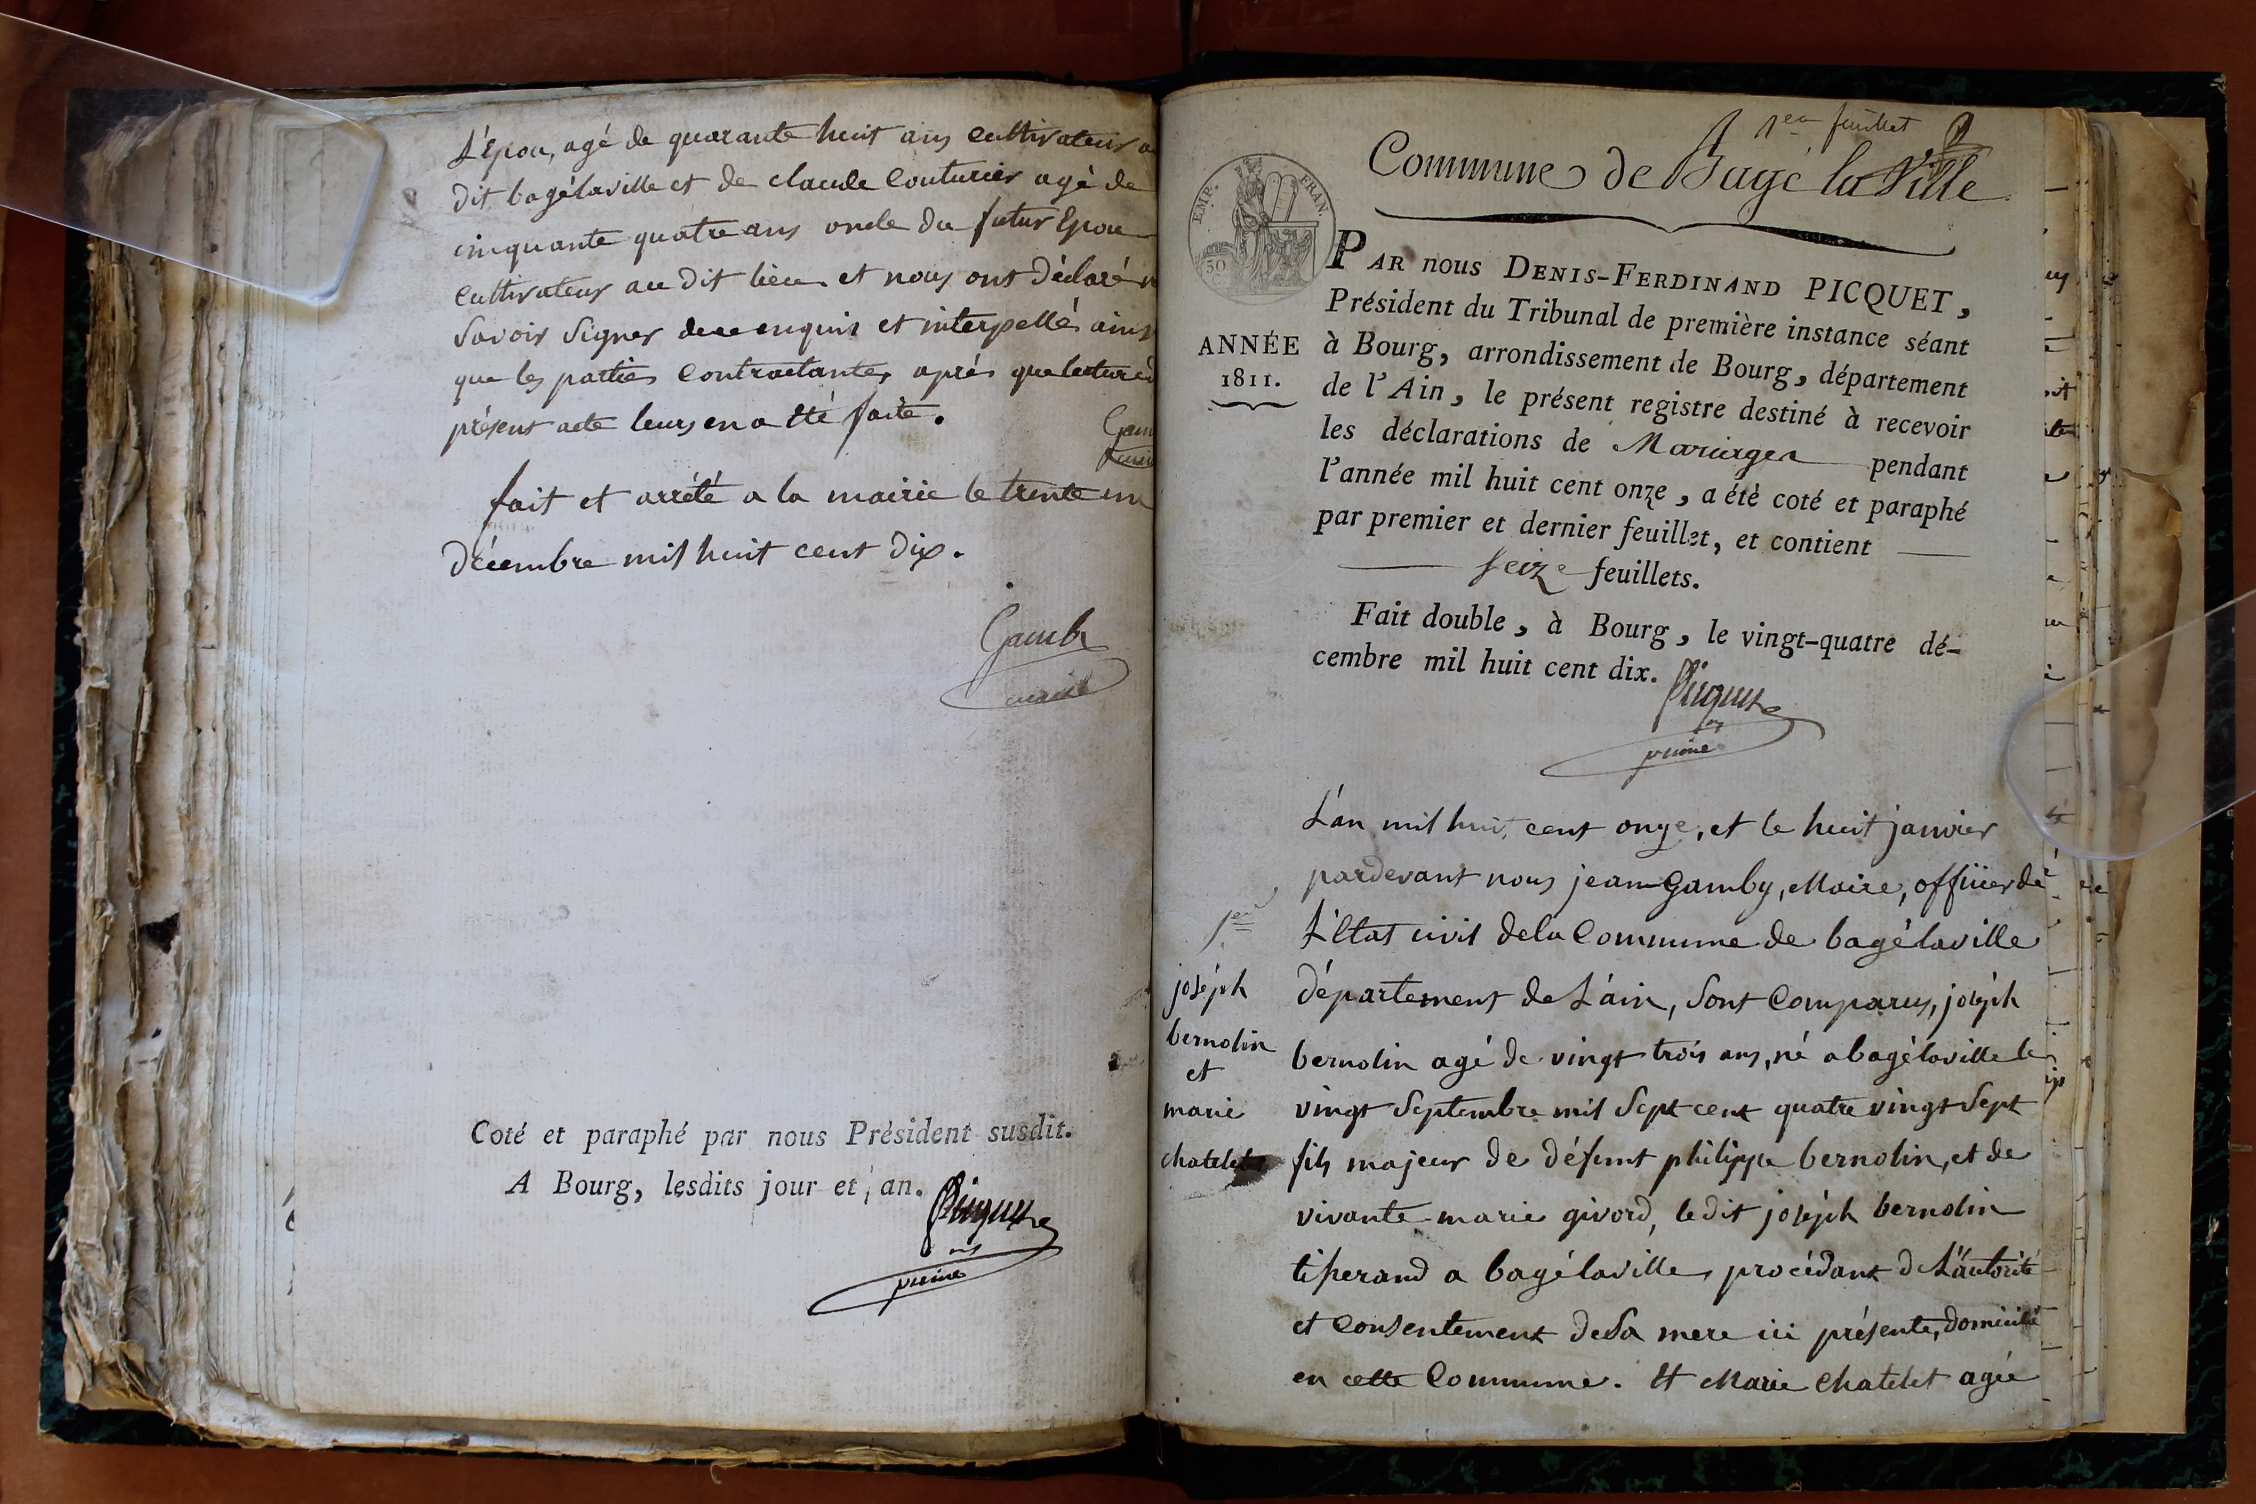 L'Epou, agé de quarante huit ans cultivateur a
dit bagélaville et de claude Couturier agé de
cinquante quatre ans oncle du futur Epou
cultivateur au dit lieu et nous ont déclaré n
savoir signer de ce enquis et interpellés ains
que les parties Contractantes après que lecture d
présent acte leurs en a été faite.
fait et arrété a la mairie le trente un
décembre mil huit cent dix.
Gamby
maire
Coté et paraphé par nous Président susdit.
A Bourg, lesdits jour et an.
Picquet
1er feuillet
Commune de Bagé la Ville
EMP. FRAN.
50
ANNÉE
1811.
PAR nous DENIS-FERDINAND PICQUET,
Président du Tribunal de première instance séant
à Bourg, arrondissement de Bourg, département
de l'Ain, le présent registre destiné à recevoir
les déclarations de Mariages pendant
l'année mil huit cent onze, a été coté et paraphé
par premier et dernier feuillet, et contient
seize feuillets.
Fait double, à Bourg, le vingt-quatre dé-
cembre mil huit cent dix.
Picquet
1er
joséph
bernolin
et
marie
chatelet
L'an mil huit cent onze, et le huit janvier
pardevant nous jean Gamby, Maire, officier de
L'Etat civil dela Commune de bagélaville
département de L'ain, sont Comparus, joséph
bernolin agé de vingt trois ans, né a bagélaville le
vingt Septembre mil Sept cent quatre vingt Sept
fils majeur de défunt philippe bernolin, et de
vivante marie givord, ledit joséph bernolin
tisserand a bagélaville, procédant de L'autorité
et Consentement desa mere ici présente, domicilié
en cette Commune. Et Marie Chatelet agée